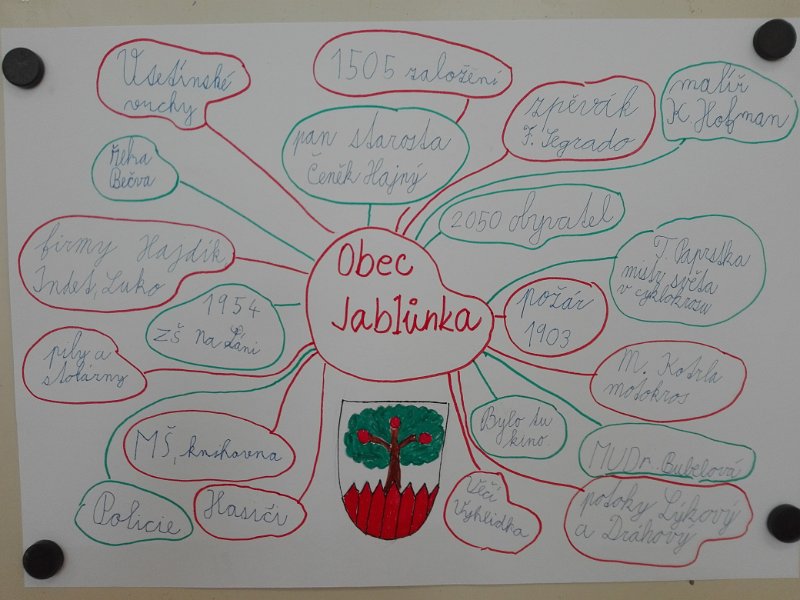 Vsetínské
vrchy
1505 založení
zpěvák
F. Segrado
malíř
K. Hofman
pan starosta
Čeněk Hajný
řeka
Bečva
2050 obyvatel
firmy Hajdík
Indet, Luko
Obec
Jablůnka
J. Paprstka
mistr světa
v cyklokrosu
1954
ZŠ Na Láni
požár
1903
pily a
stolárny
M. Kotrla
motokros
MŠ, knihovna
Bylo tu
kino.
MUDr. Bubelová
Policie
Hasiči
Věčí
Vyhlídka
potoky Lýkový
a Dráhový